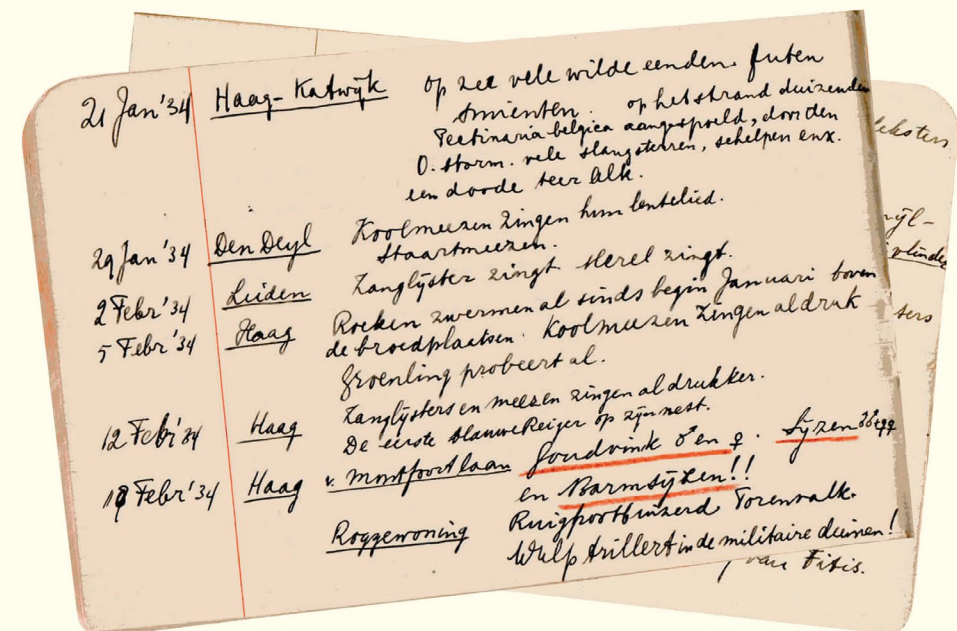 21 Jan '34 Haag-Katwijk op zee vele wilde eenden. futen
smienten. op het strand duizenden
Pectinaria belgica aangespoeld, door den
O. storm. vele slangsterren, schelpen enz.
een doode teer Alk.
29 Jan '34 Den Deyl Koolmeezen zingen hun lentelied.
Staartmeezen.
2 Febr '34 Leiden Zanglijster zingt. Merel zingt.
5 Febr '34 Haag Roeken zwermen al sinds begin Januari boven
de broedplaatsen. Koolmeezen zingen al druk
Groenling probeert al.
12 Febr '34 Haag Zanglijsters en meezen zingen al drukker.
De eerste blauwe Reiger op zijn nest.
18 Febr '34 Haag v. Montfoortlaan Goudvink ♂ en ♀. Sijzen ♂♂ en ♀♀
en Barmsijzen!!
Roggewoning Ruigpootbuizerd Torenvalk.
Wulp trillert in de militaire duinen!
van Fitis.
eksters
vlinder